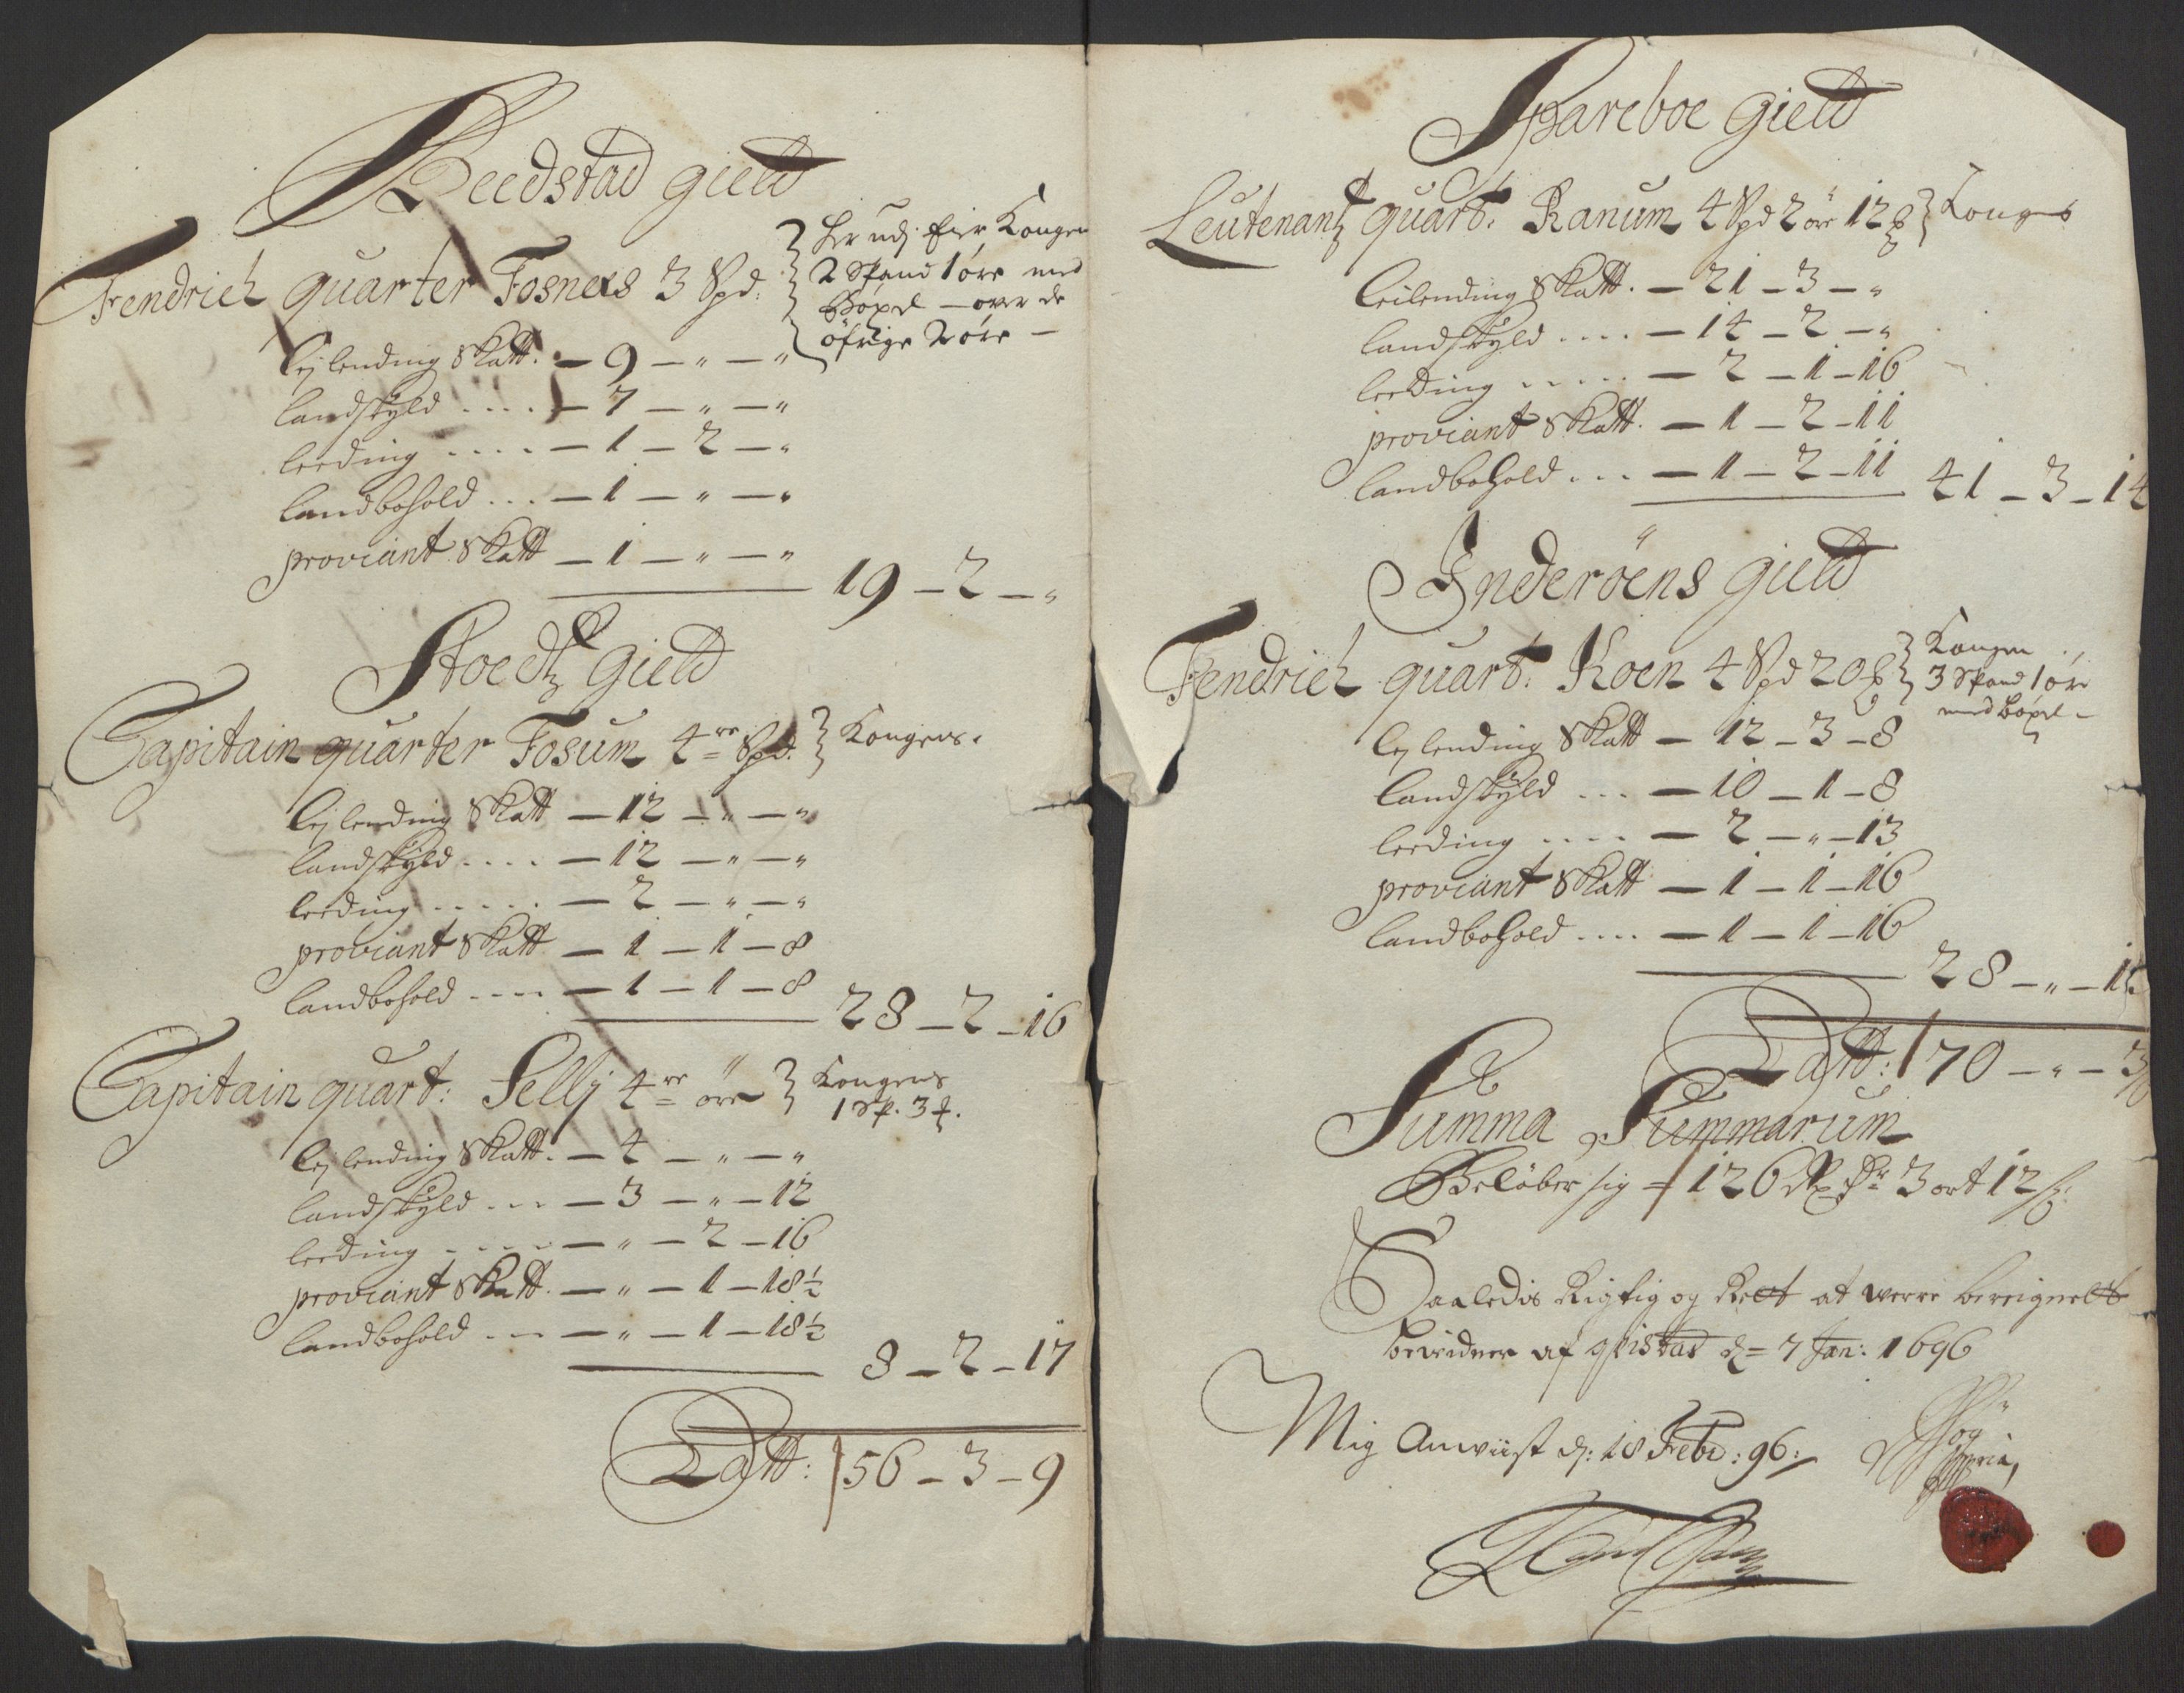 Beedstad gield
Fendrich quarter Fosness 3 Spd:
her udj Eier Kongen
2 Spand 1 øre med
Böxel – over de
öfrige 2 öre –
Lejlending Skatt. – 9 – " – "
landskÿld .... – 7 – " – "
leeding .... – 1 – 2 – "
landbohold ... – 1 – " – "
proviant Skatt – 1 – " – "
19 – 2 – "
Stoedtz Gield
Capitain quarter Fosum 4re Spd. Kongens.
Lejlending Skatt – 12 – " – "
landskÿld .... – 12 – " – "
leeding ..... – 2 – " – "
proviant Skatt – 1 – 1 – 8
landbohold .... – 1 – 1 – 8
28 – 2 – 16
Capitain quart: Sellj 4re öre Kongens
1 Sp. 3
Lejlending Skatt. – 4 – " – "
landskÿld ... – 3 – " – 12
leeding .... – " – 2 – 16
proviant Skatt. – " – 1 – 18½
landbohold ... – " – 1 – 18½
8 – 2 – 17
Latt: 56 – 3 – 9
Spareboe Gield
Leutenantz quart: Ranum 4 Spd 2 öre 12 Konges
Leilending Skatt. – 21 – 3 – "
landskÿld .... – 14 – 2 – "
leeding ..... – 2 – 1 – 16
proviant Skatt. – 1 – 2 – 11
landbohold ... – 1 – 2 – 11
41 – 3 – 14
Inderöens Gield
Fendrich quart: Koen 4 Spd 20 Kongen
3 Spand 1 öre
med böxel –
Lejlending Skatt – 12 – 3 – 8
landskÿld ... – 10 – 1 – 8
leeding .... – 2 – " – 13
proviant Skatt – 1 – 1 – 16
landbohold .... – 1 – 1 – 16
28 – " – 13
Latt: 70 – " – 3
Summa Summarum
Belöber sig – 126 Rdr 3 ort 12 ß:
Saaledis Rigtig og Rett at werre bereignett
bevidner af qvistad d= 7 Jan: 1696
Mig Anviist d: 18 Febr: 96: